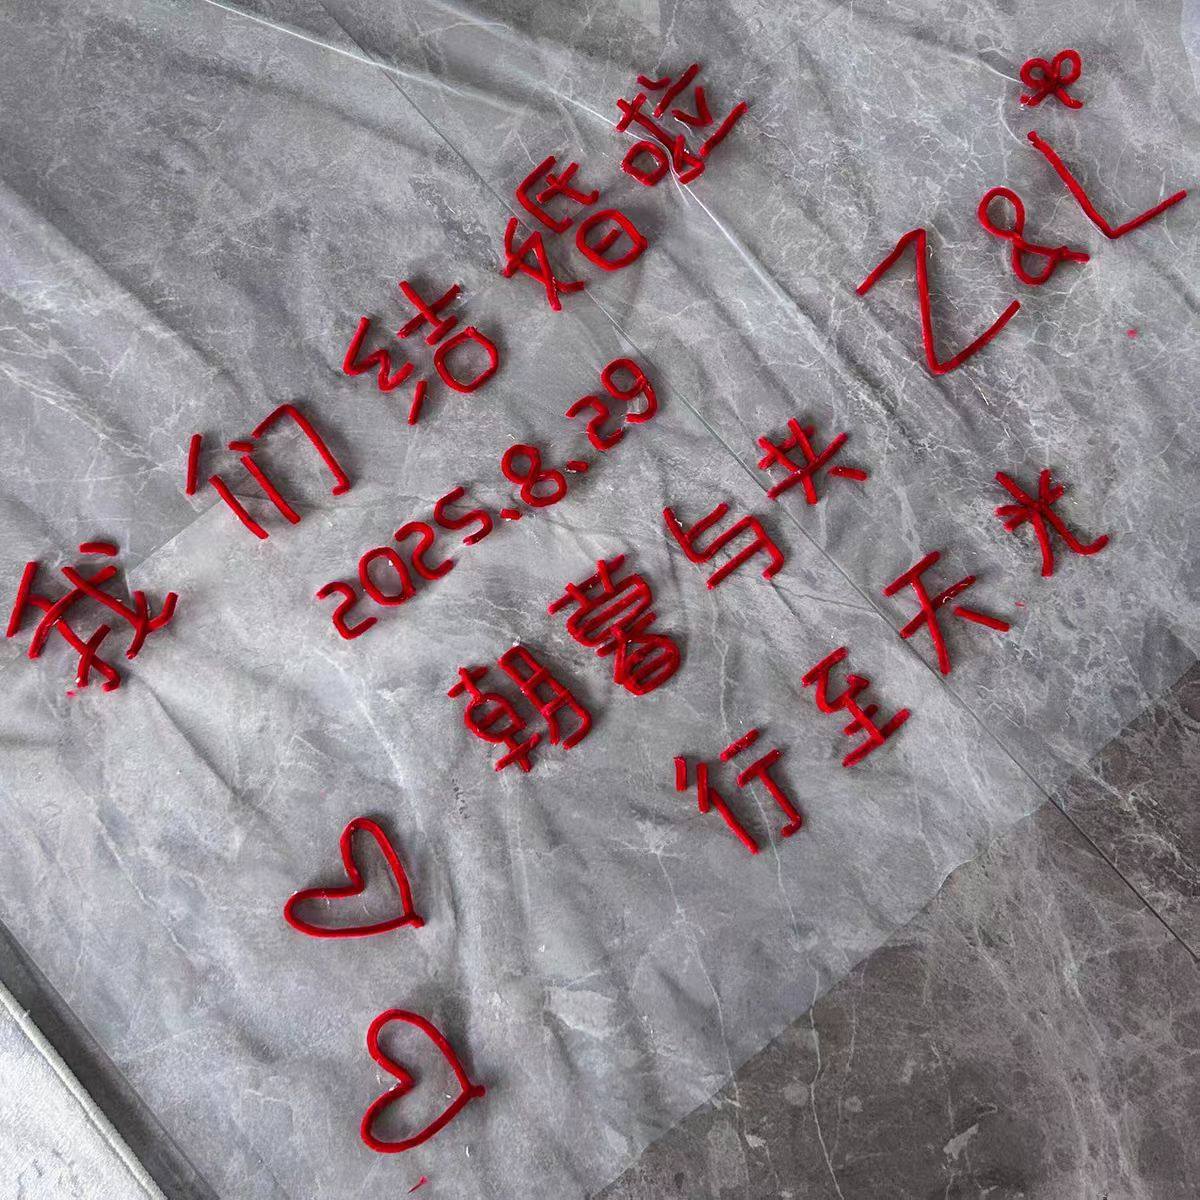 我们结婚啦
2025.8.29
Z&L
朝暮与共
行至天光